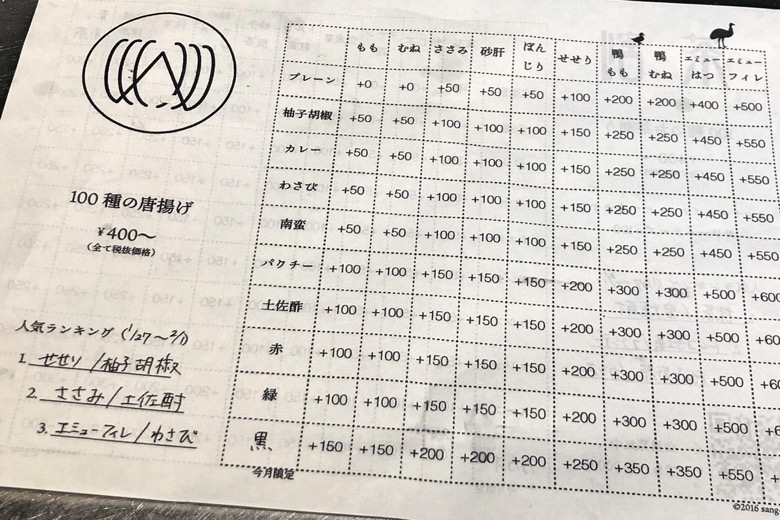 もも むね ささみ 砂肝 ぼんじり せせり 鴨もも 鴨むね エミューはつ エミューフィレ
プレーン +0 +0 +50 +50 +50 +100 +200 +200 +400 +500
柚子胡椒 +50 +50 +100 +100 +100 +150 +250 +250 +450 +550
カレー +50 +50 +100 +100 +100 +150 +250 +250 +450 +550
わさび +50 +50 +100 +100 +100 +150 +250 +250 +450 +550
南蛮 +50 +50 +100 +100 +100 +150 +250 +250 +450 +550
パクチー +100 +100 +150 +150 +150 +200 +300 +300 +500 +600
土佐酢 +100 +100 +150 +150 +150 +200 +300 +300 +500
赤 +100 +100 +150 +150 +150 +200 +300 +300 +500
緑 +100 +100 +150 +150 +150 +200 +300 +300 +500
黒 +150 +150 +200 +200 +200 +250 +350 +350 +550
今月限定
100種の唐揚げ
¥400～
(全て税抜価格)
人気ランキング (1/27～2/1)
1. せせり/柚子胡椒
2. ささみ/土佐酢
3. エミューフィレ/わさび
©2016 sang